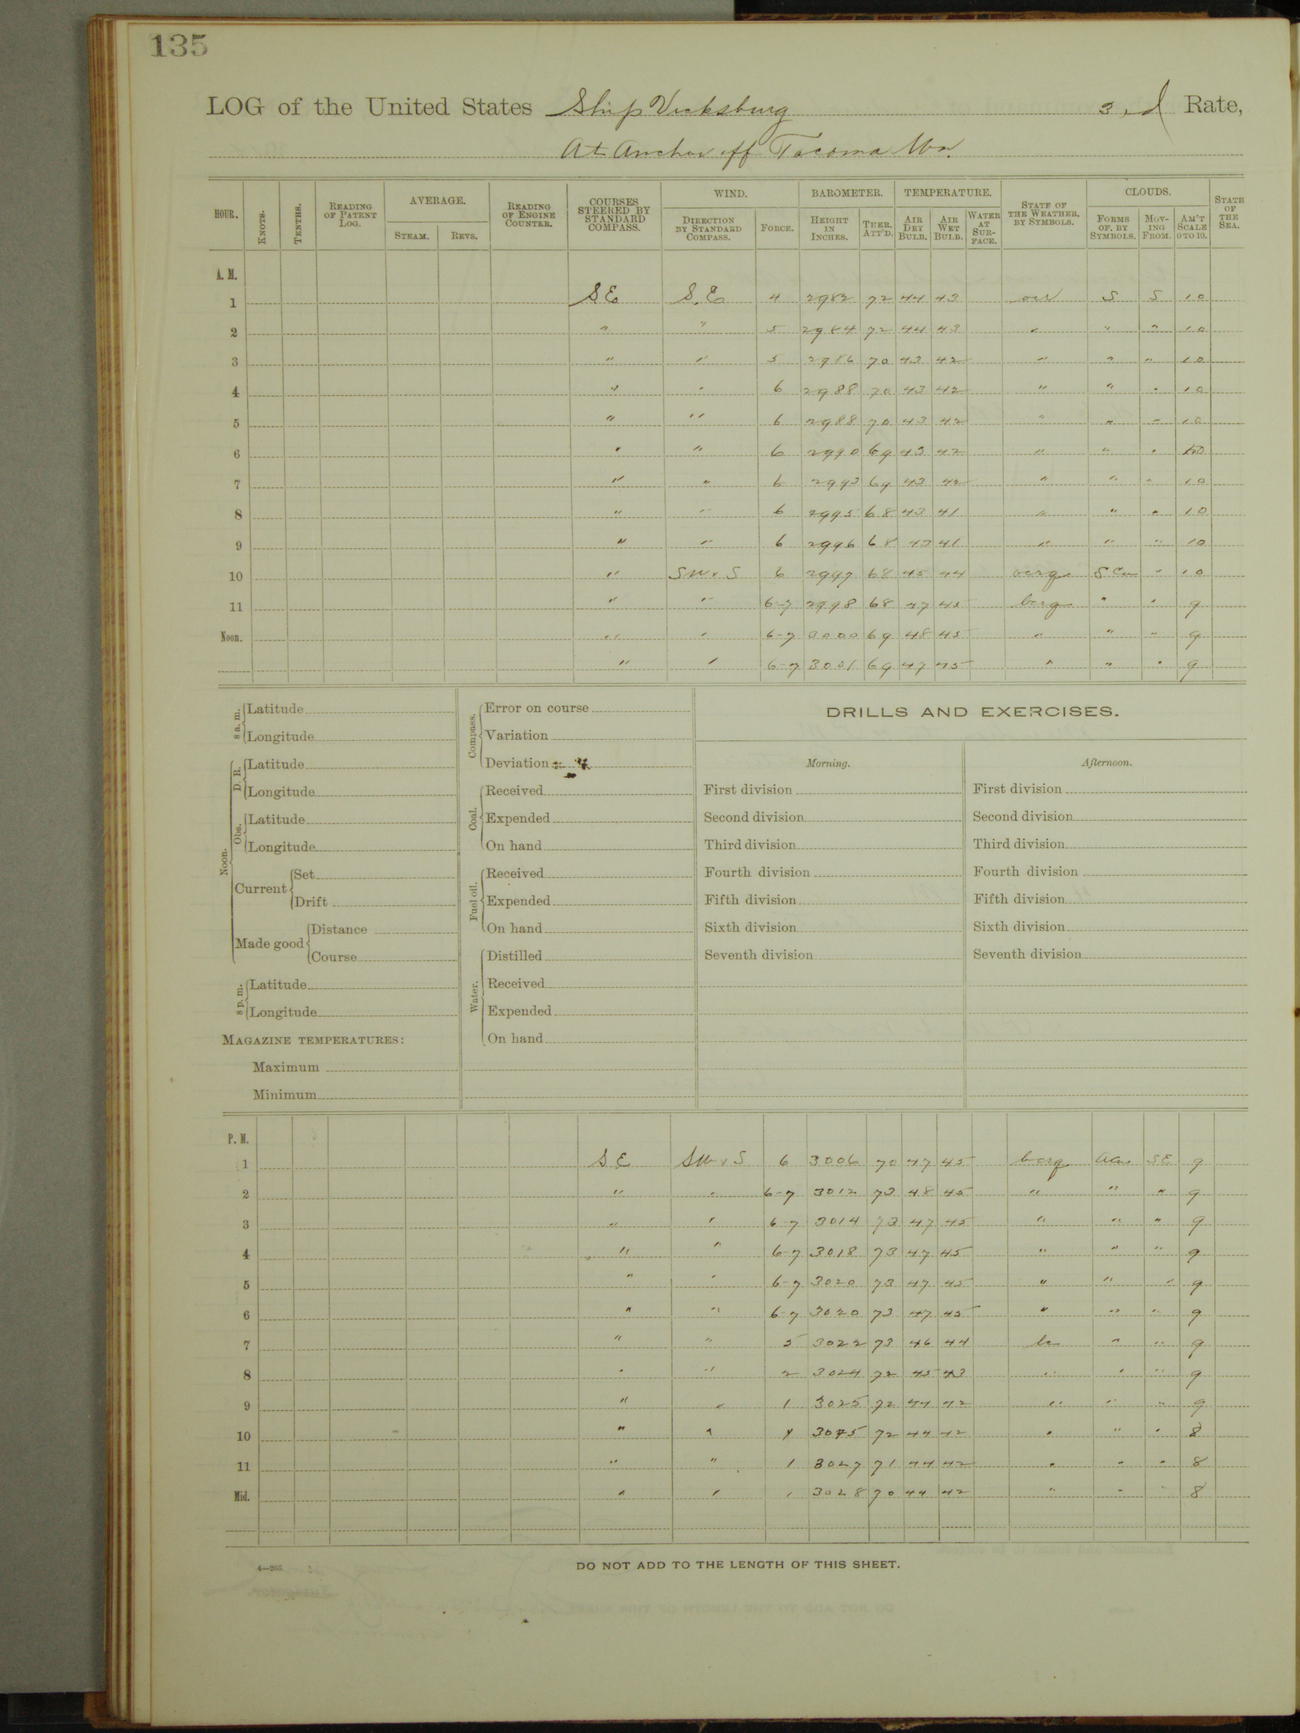 135
LOG of the United States Ship Vicksburg 3rd Rate,
At Anchor off Tacoma Wn.
HOUR. KNOTS. TENTHS. READING OF PATENT LOG. AVERAGE. STEAM. REVS. READING OF ENGINE COUNTER. COURSES STEERED BY STANDARD COMPASS. WIND. DIRECTION BY STANDARD COMPASS. FORCE. BAROMETER. HEIGHT IN INCHES. THER. ATT'D. TEMPERATURE. AIR DRY BULB. AIR WET BULB. WATER AT SURFACE. STATE OF THE WEATHER, BY SYMBOLS. CLOUDS. FORMS OF, BY SYMBOLS. MOVING FROM. AM'T SCALE 0 TO 10. STATE OF THE SEA.
A. M.
1 SE S.E 4 2982 72 44 43 S S 10
2 " " 5 2984 72 44 43 " " " 10
3 " " 5 2986 70 43 42 " " " 10
4 " " 6 2988 70 43 42 " " " 10
5 " " 6 2988 70 43 42 " " " 10
6 " " 6 2990 69 43 42 " " " 10
7 " " 6 2993 69 43 42 " " " 10
8 " " 6 2995 68 43 41 " " " 10
9 " " 6 2996 68 43 41 " " " 10
10 " SW x S 6 2997 68 45 44 ocrq S Cu " 10
11 " " 6-7 2998 68 47 45 bcrq " " 9
Noon. " " 6-7 3000 69 48 45 " " " 9
" " 6-7 3001 69 47 45 " " " 9
8 a. m. Latitude
Longitude
Noon. D. R. Latitude
Longitude
Obs. Latitude
Longitude
Current Set
Drift
Made good Distance
Course
8 p. m. Latitude
Longitude
MAGAZINE TEMPERATURES:
Maximum
Minimum
Compass. Error on course
Variation
Deviation
Coal. Received
Expended
On hand
Fuel oil. Received
Expended
On hand
Water. Distilled
Received
Expended
On hand
DRILLS AND EXERCISES.
Morning. Afternoon.
First division First division
Second division Second division
Third division Third division
Fourth division Fourth division
Fifth division Fifth division
Sixth division Sixth division
Seventh division Seventh division
P. M.
1 SE SW x S 6 3006 70 47 45 bcrq ACu SE 9
2 " " 6-7 3012 73 48 45 " " " 9
3 " " 6-7 3014 73 47 45 " " " 9
4 " " 6-7 3018 73 47 45 " " " 9
5 " " 6-7 3020 73 47 45 " " " 9
6 " " 6-7 3020 73 47 45 " " " 9
7 " " 5 3022 73 46 44 bc " " 9
8 " " 2 3024 72 45 43 " " " 9
9 " " 1 3025 72 44 42 " " " 9
10 " " 72 44 42 " " " 8
11 " " 1 3027 71 44 42 " " " 8
Mid. " " 1 3028 70 44 42 " " " 8
DO NOT ADD TO THE LENGTH OF THIS SHEET.